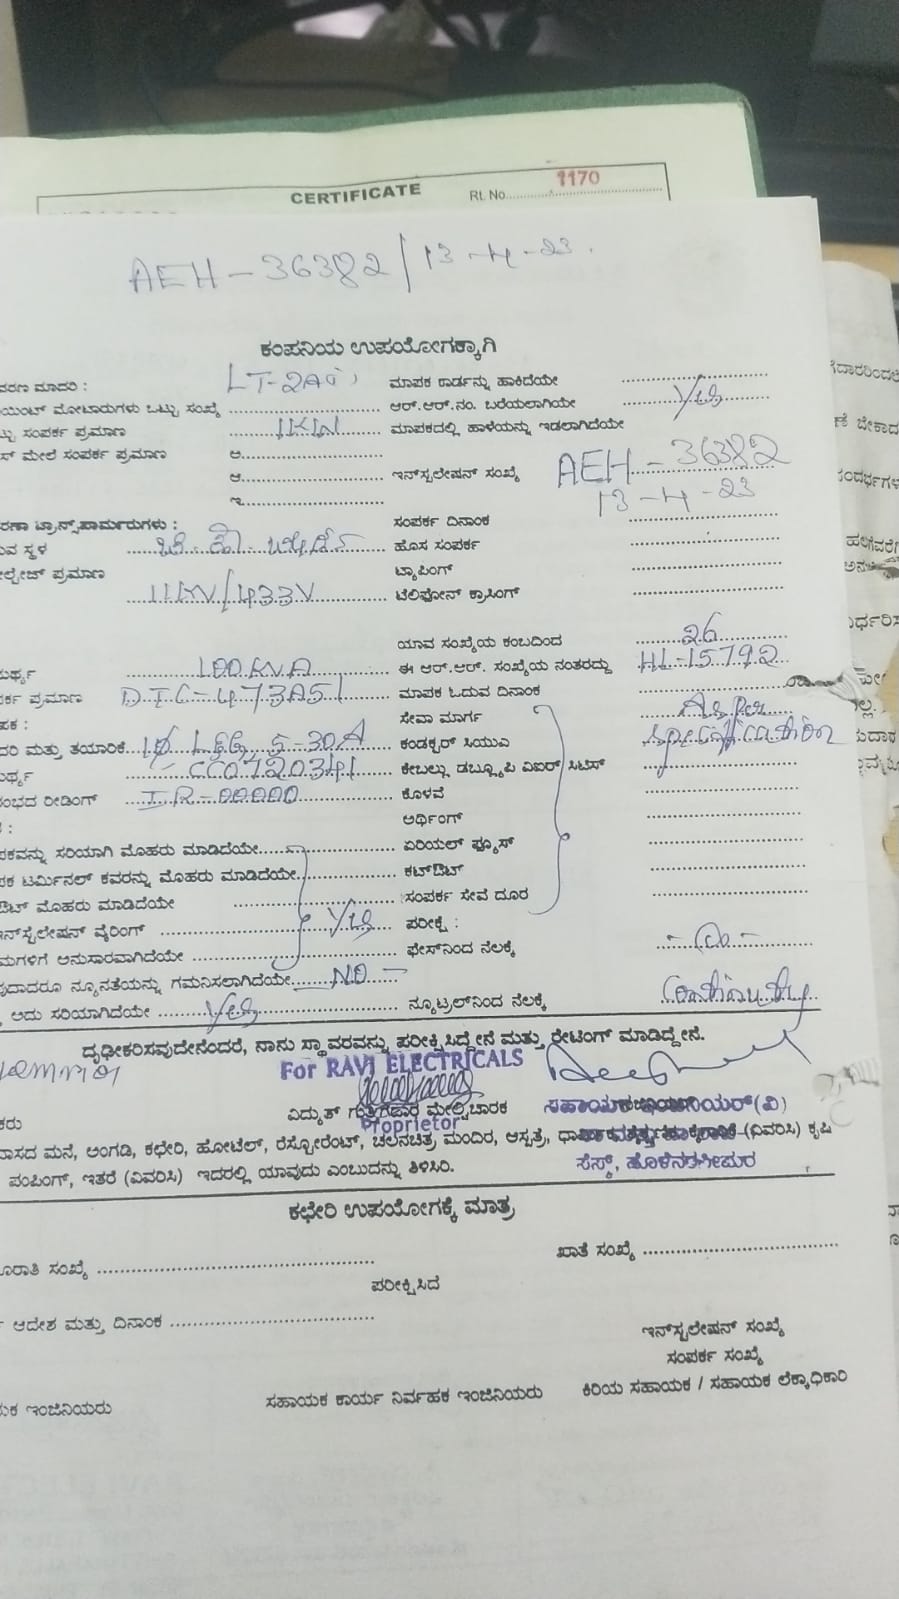 CERTIFICATE Rt. No. 1170
AEH-36382/13-4-23.
ಕಂಪನಿಯ ಉಪಯೋಗಕ್ಕಾಗಿ
ವರಣ ಮಾದರಿ : LT-2A ಮಾಪಕ ಕಾರ್ಡನ್ನು ಹಾಕಿದೆಯೇ
ಯಿಂಟ್ ಮೋಟಾರುಗಳು ಒಟ್ಟು ಸಂಖ್ಯೆ ಆರ್.ಆರ್.ನಂ. ಬರೆಯಲಾಗಿಯೇ Yes
ಟ್ಟು ಸಂಪರ್ಕ ಪ್ರಮಾಣ 1KW ಮಾಪಕದಲ್ಲಿ ಹಾಳೆಯನ್ನು ಇಡಲಾಗಿದೆಯೇ
ಸ್ ಮೇಲೆ ಸಂಪರ್ಕ ಪ್ರಮಾಣ ಅ.
ಆ. ಇನ್‌ಸ್ಟಲೇಷನ್ ಸಂಖ್ಯೆ AEH-36382
ಇ. 13-4-23
ರಣಾ ಟ್ರಾನ್ಸ್‌ಫಾರ್ಮರುಗಳು : ಸಂಪರ್ಕ ದಿನಾಂಕ
ವ ಸ್ಥಳ ಹೊಸ ಸಂಪರ್ಕ
ಲ್ಟೇಜ್ ಪ್ರಮಾಣ ಟ್ಯಾಪಿಂಗ್
11KV/433V ಟೆಲಿಫೋನ್ ಕ್ರಾಸಿಂಗ್
ಯಾವ ಸಂಖ್ಯೆಯ ಕಂಬದಿಂದ 26
ಮರ್ಥ್ಯ 100KVA ಈ ಆರ್.ಆರ್. ಸಂಖ್ಯೆಯ ನಂತರದ್ದು HL-15792
ರ್ಕ ಪ್ರಮಾಣ DTC-473A51 ಮಾಪಕ ಓದುವ ದಿನಾಂಕ
ಪಕ : ಸೇವಾ ಮಾರ್ಗ As per
ದರಿ ಮತ್ತು ತಯಾರಿಕೆ 1Ø L&G 5-30A ಕಂಡಕ್ಟರ್ ಸಿಯುಎ specification
ಮರ್ಥ್ಯ CC0720341 ಕೇಬಲ್ಲು ಡಬ್ಲ್ಯೂಪಿ ವಿಐಆರ್ ಸಿಟಿಸ್
ಂಭದ ರೀಡಿಂಗ್ IR-00000 ಕೊಳವೆ
ಅರ್ಥಿಂಗ್
ಪಕವನ್ನು ಸರಿಯಾಗಿ ಮೊಹರು ಮಾಡಿದೆಯೇ ಏರಿಯಲ್ ಫ್ಯೂಸ್
ಪಕ ಟರ್ಮಿನಲ್ ಕವರನ್ನು ಮೊಹರು ಮಾಡಿದೆಯೇ ಕಟ್‌ಔಟ್
ಔಟ್ ಮೊಹರು ಮಾಡಿದೆಯೇ ಸಂಪರ್ಕ ಸೇವೆ ದೂರ
ನ್‌ಸ್ಟೆಲೇಷನ್ ವೈರಿಂಗ್ Yes ಪರೀಕ್ಷೆ :
ಮಗಳಿಗೆ ಅನುಸಾರವಾಗಿದೆಯೇ ಫೇಸ್‌ನಿಂದ ನೆಲಕ್ಕೆ
ವುದಾದರೂ ನ್ಯೂನತೆಯನ್ನು ಗಮನಿಸಲಾಗಿದೆಯೇ NO
ಅದು ಸರಿಯಾಗಿದೆಯೇ Yes ನ್ಯೂಟ್ರಲ್‌ನಿಂದ ನೆಲಕ್ಕೆ Continuity
ದೃಢೀಕರಿಸವುದೇನೆಂದರೆ, ನಾನು ಸ್ಥಾವರವನ್ನು ಪರೀಕ್ಷಿಸಿದ್ದೇನೆ ಮತ್ತು ರೇಟಿಂಗ್ ಮಾಡಿದ್ದೇನೆ.
For RAVI ELECTRICALS
ಕರು ವಿದ್ಯುತ್ ಗುತ್ತಿಗೆದಾರ ಮೇಲ್ವಿಚಾರಕ
Proprietor
ವಾಸದ ಮನೆ, ಅಂಗಡಿ, ಕಛೇರಿ, ಹೋಟೆಲ್, ರೆಸ್ಟೋರೆಂಟ್, ಚಲನಚಿತ್ರ ಮಂದಿರ, ಆಸ್ಪತ್ರೆ, (ವಿವರಿಸಿ) ಕೃಷಿ
ಪಂಪಿಂಗ್, ಇತರೆ (ವಿವರಿಸಿ) ಇದರಲ್ಲಿ ಯಾವುದು ಎಂಬುದನ್ನು ತಿಳಿಸಿರಿ. ಸೆಸ್ಕ್, ಹೊಳೆನರಸೀಪುರ
ಕಛೇರಿ ಉಪಯೋಗಕ್ಕೆ ಮಾತ್ರ
ರಾತಿ ಸಂಖ್ಯೆ ಖಾತೆ ಸಂಖ್ಯೆ
ಪರೀಕ್ಷಿಸಿದೆ
ಆದೇಶ ಮತ್ತು ದಿನಾಂಕ
ಇನ್‌ಸ್ಟಲೇಷನ್ ಸಂಖ್ಯೆ
ಸಂಪರ್ಕ ಸಂಖ್ಯೆ
ಯಕ ಇಂಜಿನಿಯರು ಸಹಾಯಕ ಕಾರ್ಯ ನಿರ್ವಾಹಕ ಇಂಜಿನಿಯರು ಕಿರಿಯ ಸಹಾಯಕ / ಸಹಾಯಕ ಲೆಕ್ಕಾಧಿಕಾರಿ